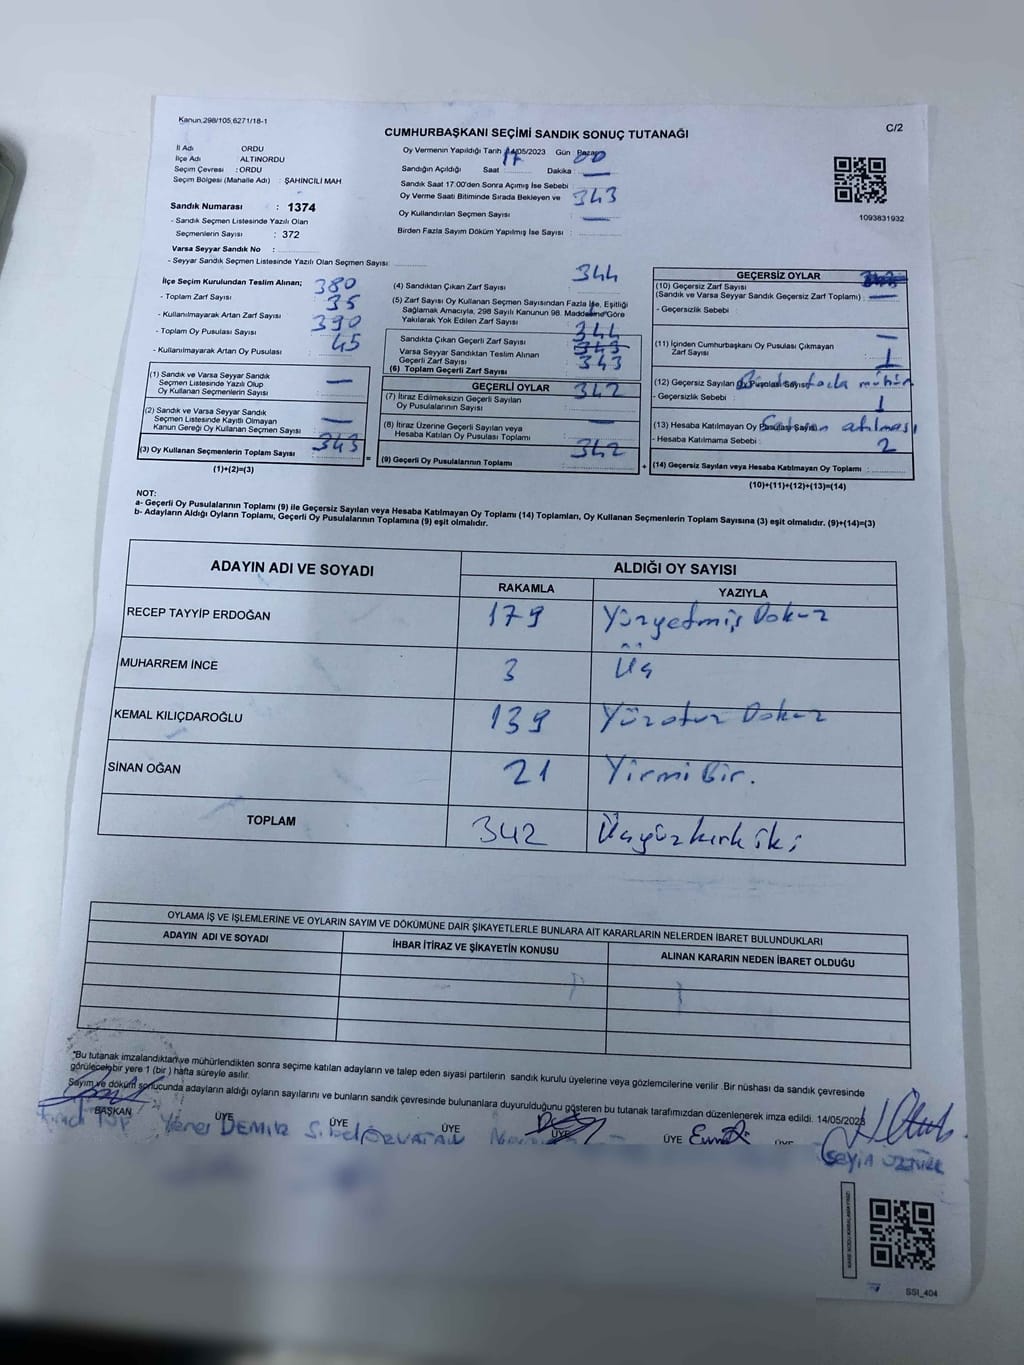 Kanun,298/105,6271/18-1
C/2
CUMHURBAŞKANI SEÇİMİ SANDIK SONUÇ TUTANAĞI
İl Adı ORDU
İlçe Adı ALTINORDU
Seçim Çevresi : ORDU
Seçim Bölgesi (Mahalle Adı) : ŞAHİNCİLİ MAH
Sandık Numarası : 1374
- Sandık Seçmen Listesinde Yazılı Olan
Seçmenlerin Sayısı : 372
Varsa Seyyar Sandık No :
- Seyyar Sandık Seçmen Listesinde Yazılı Olan Seçmen Sayısı:
Oy Vermenin Yapıldığı Tarih 14/05/2023 Gün Pazar
Sandığın Açıldığı Saat 17 Dakika 00
Sandık Saat 17:00'den Sonra Açımış İse Sebebi
Oy Verme Saati Bitiminde Sırada Bekleyen ve
Oy Kullandırılan Seçmen Sayısı 343
Birden Fazla Sayım Döküm Yapılmış İse Sayısı :
1093831932
İlçe Seçim Kurulundan Teslim Alınan;
- Toplam Zarf Sayısı : 380
- Kullanılmayarak Artan Zarf Sayısı : 35
- Toplam Oy Pusulası Sayısı : 390
- Kullanılmayarak Artan Oy Pusulası : 45
(1) Sandık ve Varsa Seyyar Sandık
Seçmen Listesinde Yazılı Olup
Oy Kullanan Seçmenlerin Sayısı —
(2) Sandık ve Varsa Seyyar Sandık
Seçmen Listesinde Kayıtlı Olmayan
Kanun Gereği Oy Kullanan Seçmen Sayısı —
(3) Oy Kullanan Seçmenlerin Toplam Sayısı 343
(1)+(2)=(3)
(4) Sandıktan Çıkan Zarf Sayısı : 344
(5) Zarf Sayısı Oy Kullanan Seçmen Sayısından Fazla İse, Eşitliği
Sağlamak Amacıyla, 298 Sayılı Kanunun 98. Maddesine Göre
Yakılarak Yok Edilen Zarf Sayısı
Sandıkta Çıkan Geçerli Zarf Sayısı : 344
Varsa Seyyar Sandıktan Teslim Alınan
Geçerli Zarf Sayısı 343
(6) Toplam Geçerli Zarf Sayısı : 343
GEÇERLİ OYLAR
(7) İtiraz Edilmeksizin Geçerli Sayılan
Oy Pusulalarının Sayısı : 342
(8) İtiraz Üzerine Geçerli Sayılan veya
Hesaba Katılan Oy Pusulası Toplamı —
(9) Geçerli Oy Pusulalarının Toplamı : 342
GEÇERSİZ OYLAR
(10) Geçersiz Zarf Sayısı
(Sandık ve Varsa Seyyar Sandık Geçersiz Zarf Toplamı) : —
- Geçersizlik Sebebi
(11) İçinden Cumhurbaşkanı Oy Pusulası Çıkmayan
Zarf Sayısı —
(12) Geçersiz Sayılan Oy Pusulası Sayısı 1
- Geçersizlik Sebebi : fazla mühür
(13) Hesaba Katılmayan Oy Pusulası Sayısı 1
- Hesaba Katılmama Sebebi : atılması
(14) Geçersiz Sayılan veya Hesaba Katılmayan Oy Toplamı : 2
(10)+(11)+(12)+(13)=(14)
NOT:
a- Geçerli Oy Pusulalarının Toplamı (9) ile Geçersiz Sayılan veya Hesaba Katılmayan Oy Toplamı (14) Toplamları, Oy Kullanan Seçmenlerin Toplam Sayısına (3) eşit olmalıdır. (9)+(14)=(3)
b- Adayların Aldığı Oyların Toplamı, Geçerli Oy Pusulalarının Toplamına (9) eşit olmalıdır.
ADAYIN ADI VE SOYADI ALDIĞI OY SAYISI
RAKAMLA YAZIYLA
RECEP TAYYİP ERDOĞAN 179 Yüzyetmiş Dokuz
MUHARREM İNCE 3 Üç
KEMAL KILIÇDAROĞLU 139 Yüzotuz Dokuz
SİNAN OĞAN 21 Yirmi Bir.
TOPLAM 342 Üçyüzkırk iki
OYLAMA İŞ VE İŞLEMLERİNE VE OYLARIN SAYIM VE DÖKÜMÜNE DAİR ŞİKAYETLERLE BUNLARA AİT KARARLARIN NELERDEN İBARET BULUNDUKLARI
ADAYIN ADI VE SOYADI İHBAR İTİRAZ VE ŞİKAYETİN KONUSU ALINAN KARARIN NEDEN İBARET OLDUĞU
"Bu tutanak imzalandıktan ve mühürlendikten sonra seçime katılan adayların ve talep eden siyasi partilerin sandık kurulu üyelerine veya gözlemcilerine verilir. Bir nüshası da sandık çevresinde
görülecebilir yere 1 (bir) hafta süreyle asılır.
Sayım ve döküm sonucunda adayların aldığı oyların sayılarını ve bunların sandık çevresinde bulunanlara duyurulduğunu gösteren bu tutanak tarafımızdan düzenlenerek imza edildi. 14/05/2023
BAŞKAN ÜYE ÜYE ÜYE ÜYE ÜYE ÜYE
DEMİR
SSI_404